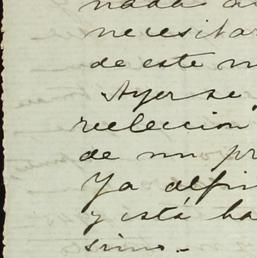 nada
necesitar
de este m
Ayer se
reelección
de un pr
Ya alfin
y está ha
simo.-